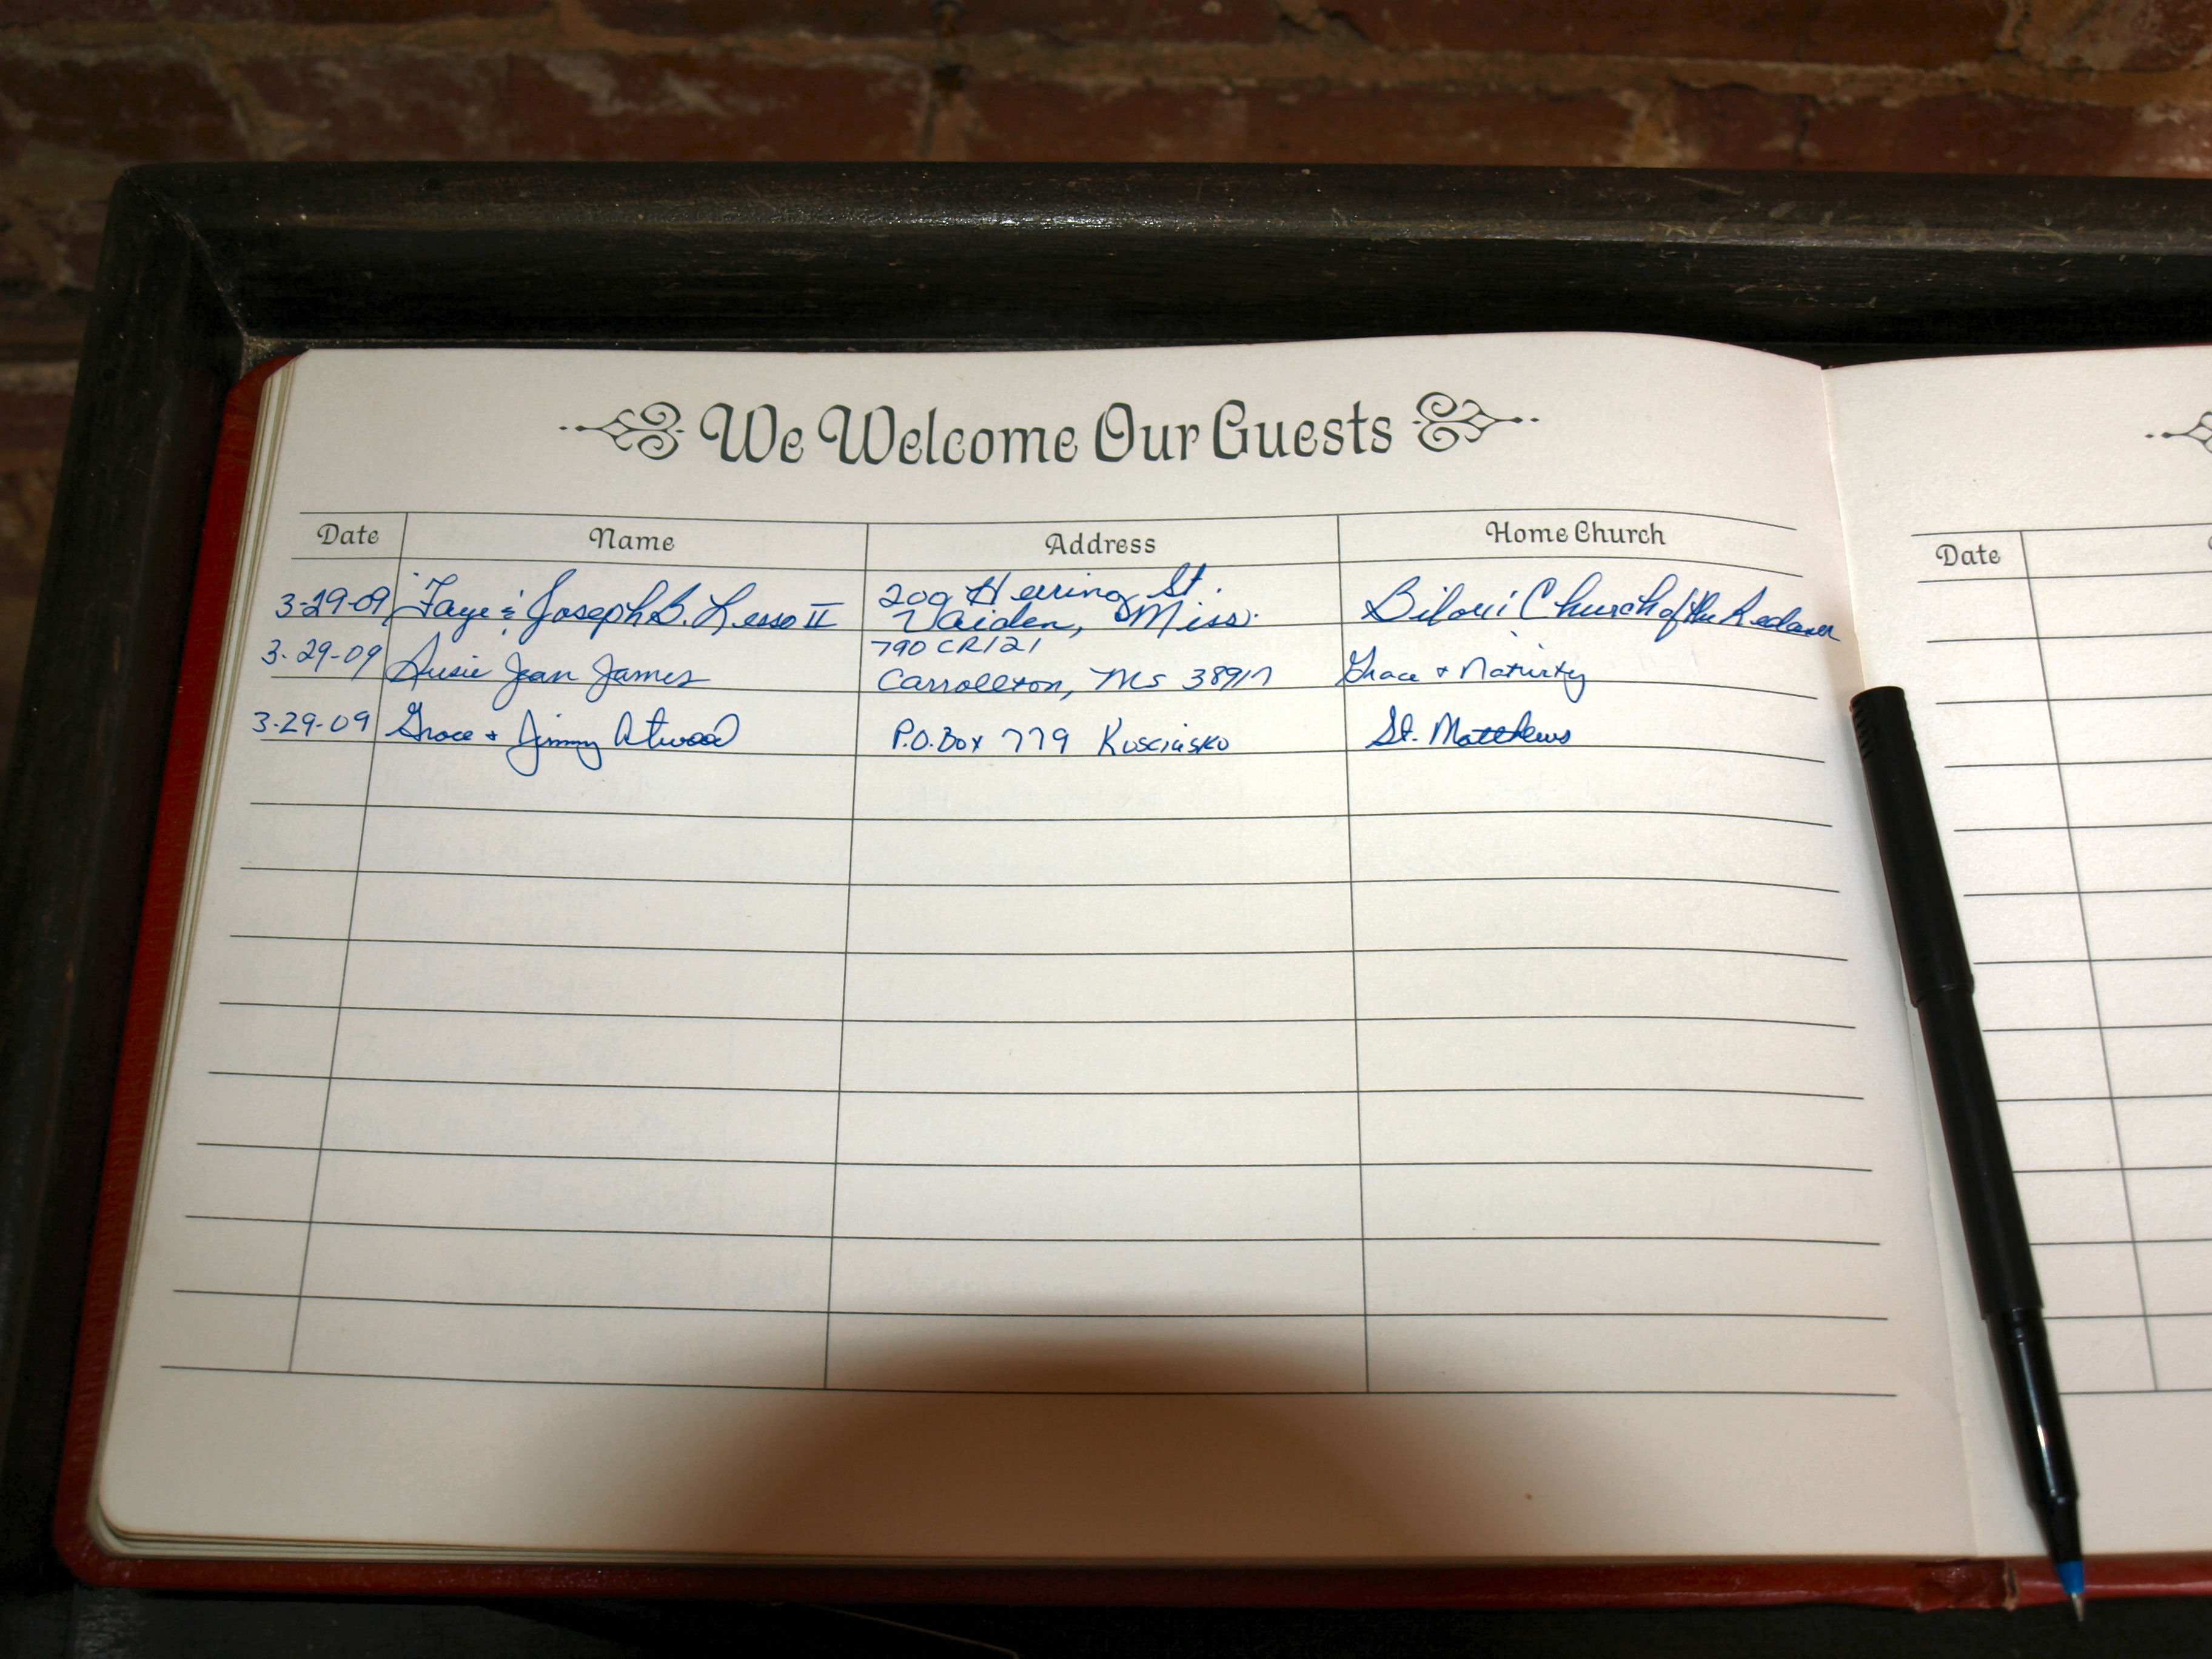 We Welcome Our Guests
Date Name Address Home Church
Date
3-29-09 Faye & Joseph B. Lesso II 209 Herring St. Vaiden, Miss. Biloxi Church of the Redeemer
3-29-09 Susie Jean James 790 CR 121 Carrollton, Ms 38917 Grace + Nativity
3-29-09 Grace + Jimmy Atwood P.O. Box 779 Kosciusko St. Matthews